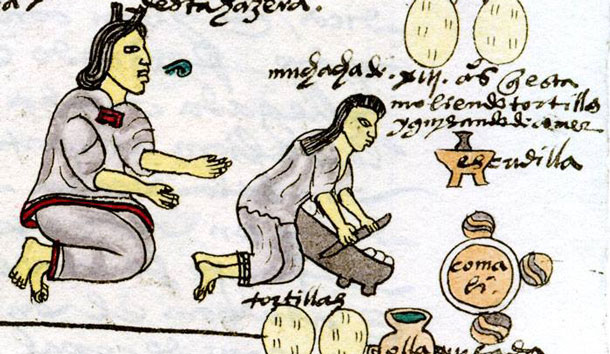 desta hazera.
muchacha de . xiii . años q esta
moliendo tortillas
y guisando de comer
escudilla
coma
li.
tortillas
olla